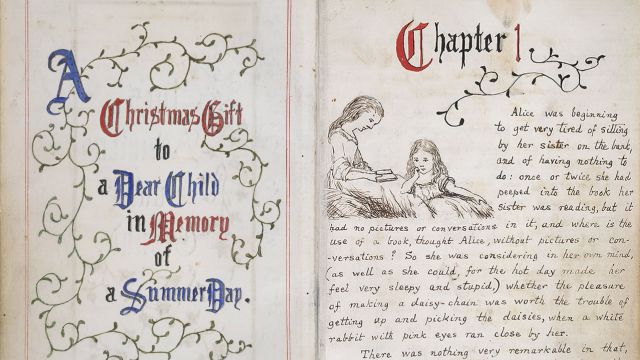 A
Christmas Gift
to
a Dear Child
in Memory
of
a Summer Day.
Chapter 1
Alice was beginning
to get very tired of sitting
by her sister on the bank,
and of having nothing to
do: once or twice she had
peeped into the book her
sister was reading, but it
had no pictures or conversations in it, and where is the
use of a book, thought Alice, without pictures or con-
-versations? So she was considering in her own mind,
(as well as she could, for the hot day made her
feel very sleepy and stupid,) whether the pleasure
of making a daisy-chain was worth the trouble of
getting up and picking the daisies, when a white
rabbit with pink eyes ran close by her.
There was nothing very remarkable in that,